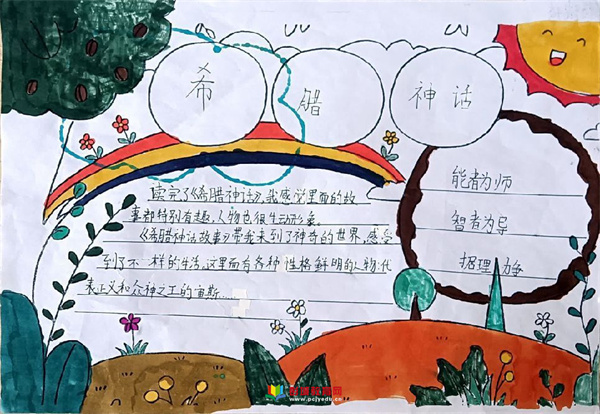 希腊神话
读完了《希腊神话》,我感觉里面的故
事都特别有趣,人物也很生动形象。
《希腊神话故事》带我来到了神奇的世界,感受
到了不一样的生活。这里面有各种性格鲜明的人物,代
表正义和众神之王的宙斯……
能者为师
智者为导
据理力争
www.pcjyedu.cn